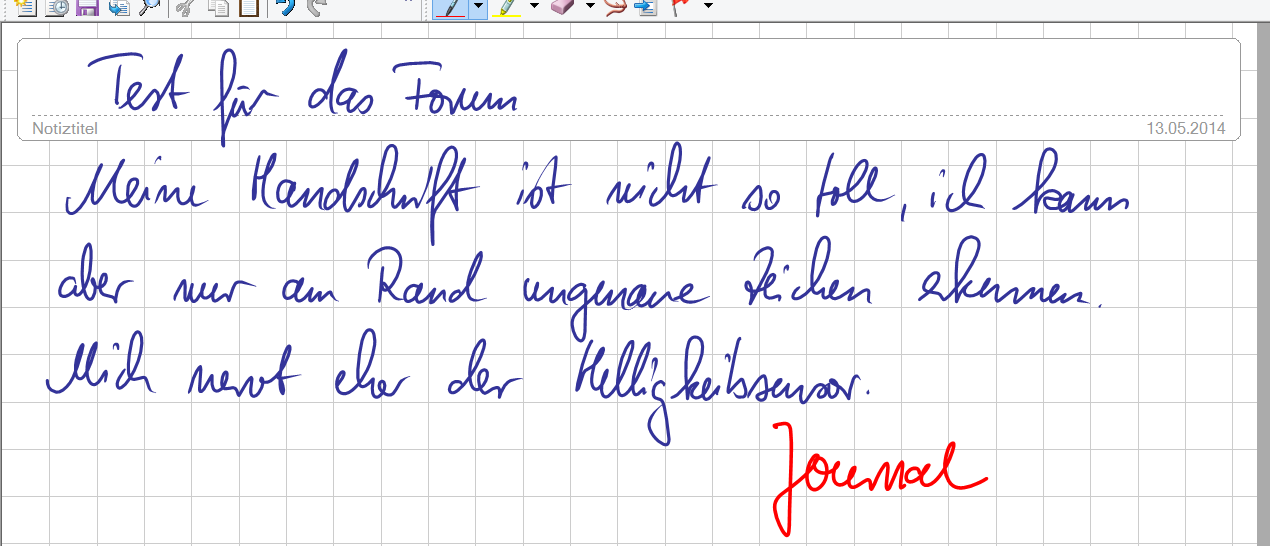 Test für das Forum
Notiztitel 13.05.2014
Meine Handschrift ist nicht so toll, ich kann
aber nur am Rand ungenaue Zeichen erkennen.
Mich nervt eher der Helligkeitssensor.
Journal